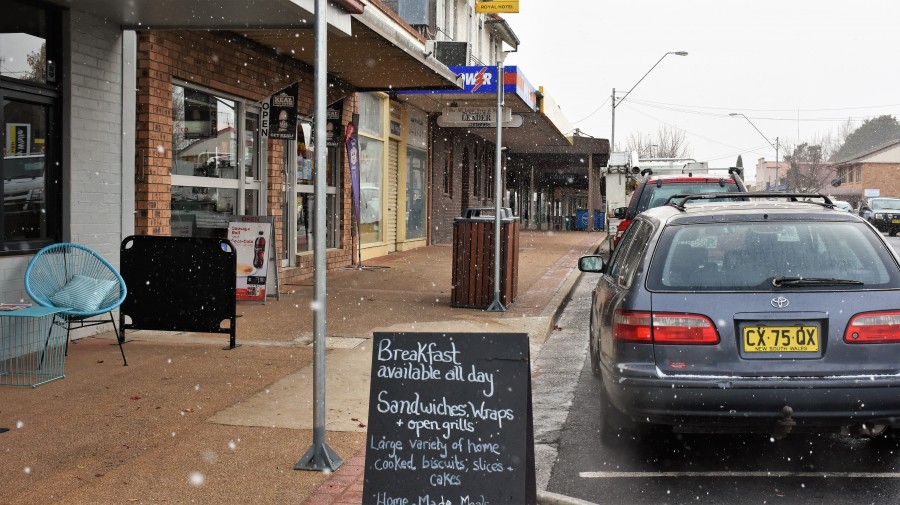 ROYAL HOTEL
OPEN
REAL
LEADER
Coca-Cola
Breakfast
available all day
Sandwiches, Wraps
+ open grills
Large variety of home
cooked, biscuits, slices +
cakes
Home-Made Meals
CX·75·QX
NEW SOUTH WALES